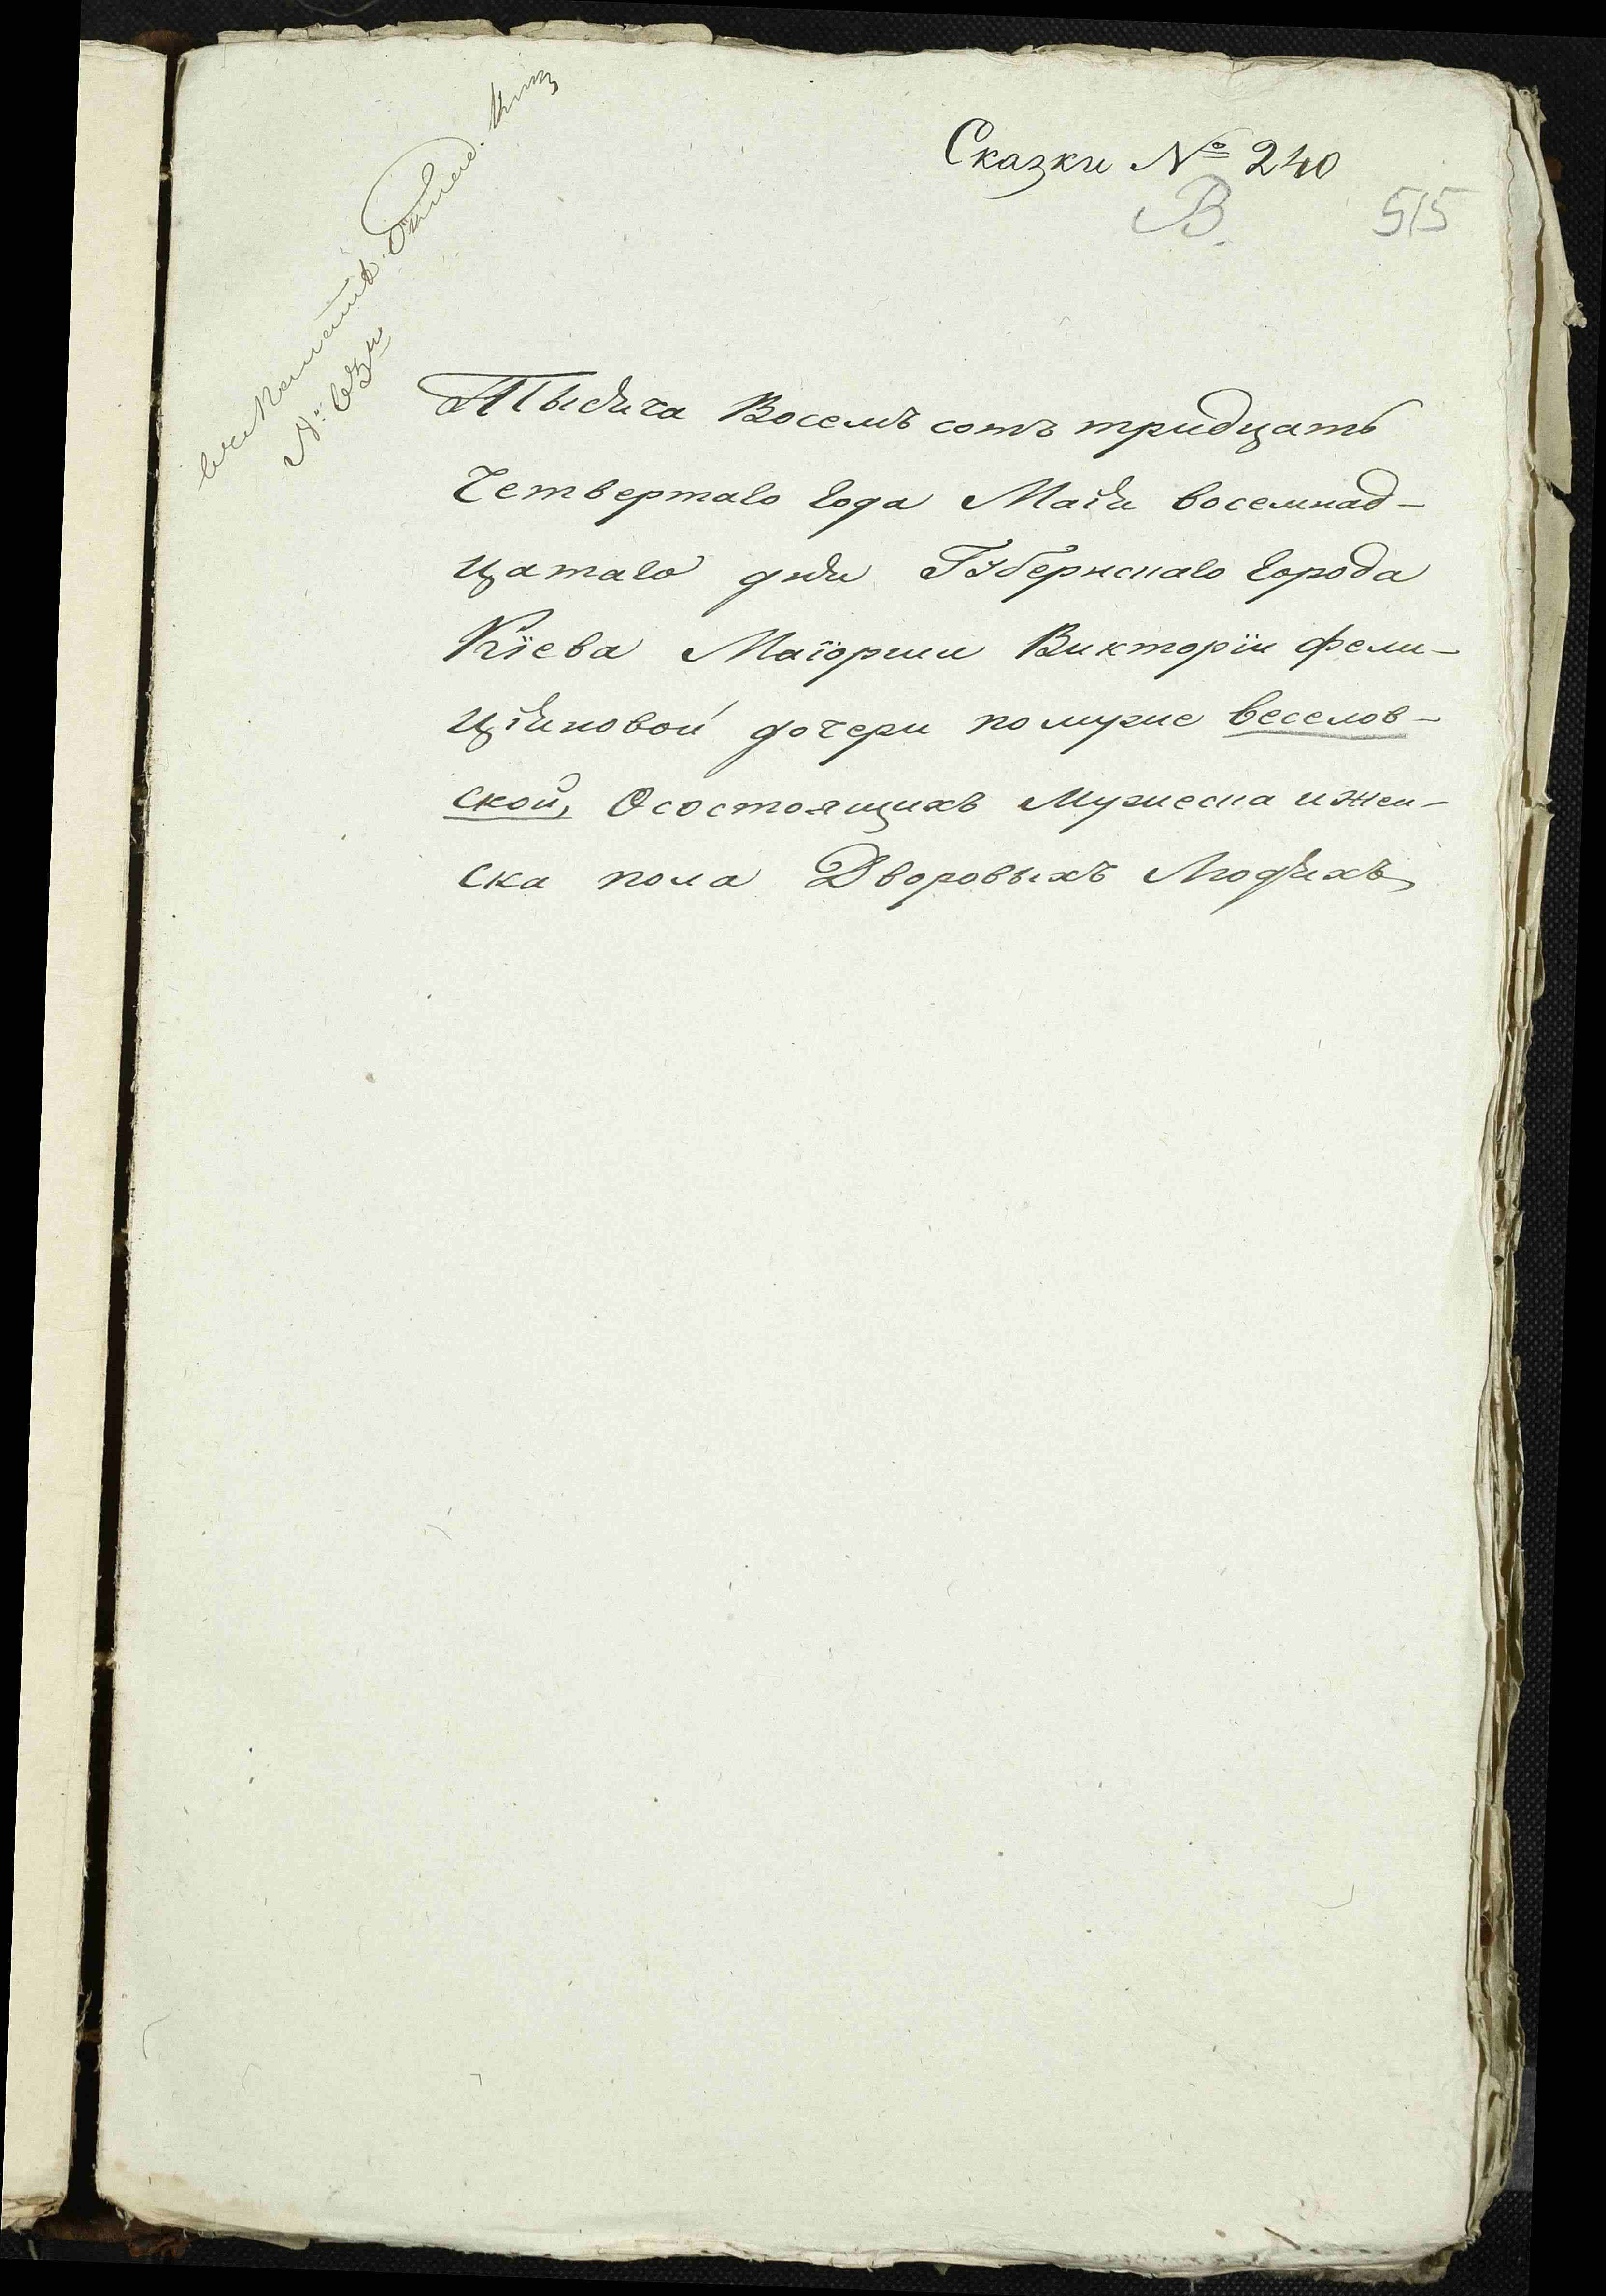 Сказки № 240
В.
515
Тысяча Восемъ сотъ тридцать
Четвертаго года Маія восемнад-
цатаго дня Губернскаго города
Кіева Маіорши Викторіи фели-
ціяновой дочери помужне веселов-
ской, О состоящихъ Мужеска и жен-
ска пола Дворовыхъ Людяхъ